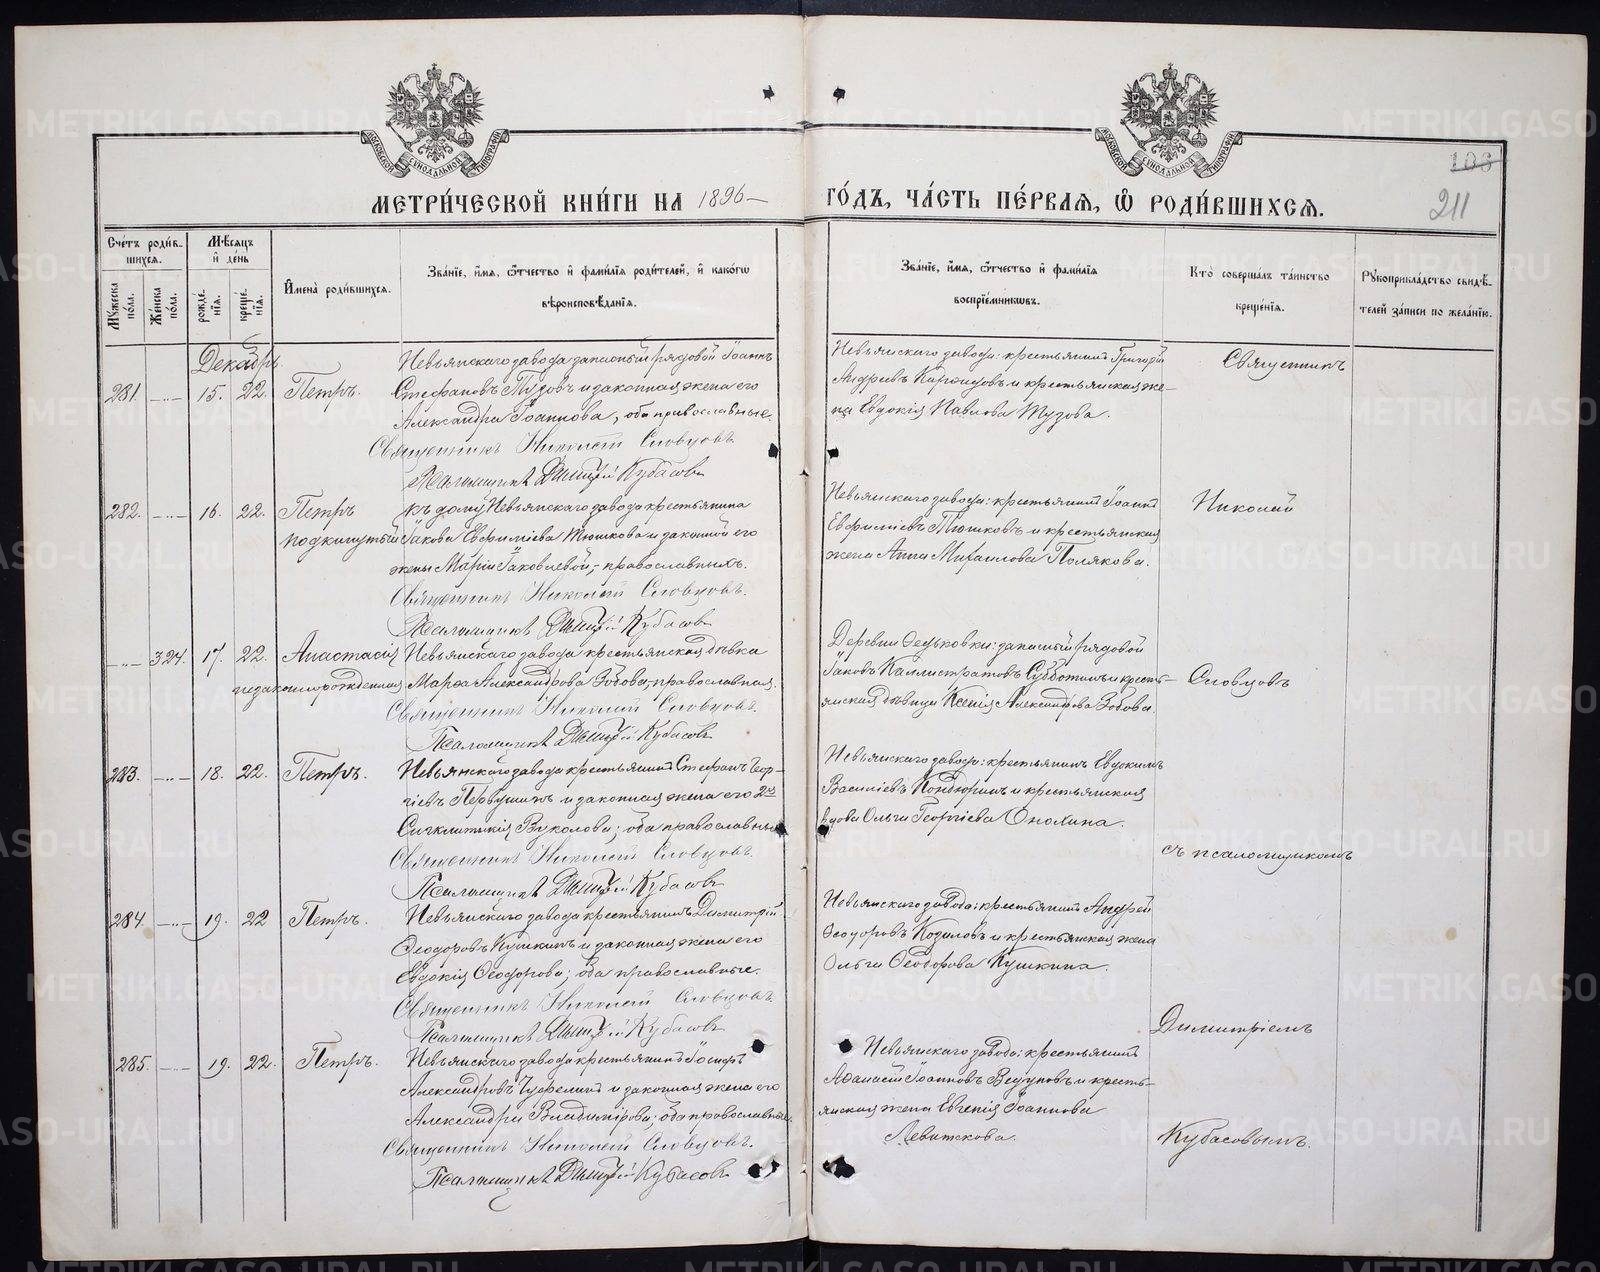 МЕТРИ́ЧЕСКОЙ КНИ́ГИ НА 1896
ГО́ДЪ, ЧА́СТЬ ПЕ́РВАѦ, Ѽ РОДИ́ВШИХСѦ.
106
211
Сче́тъ роди́в-
шихсѧ.
Мѣ́сѧцъ
и҆ де́нь
Му́жеска
по́ла.
Же́нска
по́ла.
рожде́-
нїѧ.
креще́-
нїѧ.
И҆мена̀ роди́вшихсѧ.
Зва́нїе, и҆́мѧ, ѻ҆́тчество и҆ фами́лїѧ роди́телей, и҆ како́гѡ
вѣроисповѣ́данїѧ.
Зва́нїе, и҆́мѧ, ѻ҆́тчество и҆ фами́лїѧ
воспрїе́мникѡвъ.
Кто̀ соверша́лъ та́инство
креще́нїѧ.
Рꙋкоприкла́дство свидѣ́-
телей за́писи по жела́нїю.
Декабрь
281. 15. 22. Петръ.
Невьянскаго завода запасный рядовой Іоаннъ
Стефановъ и законная жена его
Александра Іоаннова, оба православные.
Священникъ Николай Словцовъ
Псаломщикъ Димитрій Кубасовъ
Невьянскаго завода: крестьянинъ Григорій
Андреевъ и крестьянская же-
на Евдокія Павлова Тузова.
Священникъ
282. 16. 22. Петръ
подкинутый
къ дому Невьянскаго завода крестьянина
Іакова Евфиміева Тюшкова и законной его
жены Маріи Іаковлевой, православныхъ.
Священникъ Николай Словцовъ.
Псаломщикъ Димитрій Кубасовъ
Невьянскаго завода: крестьянинъ Іоаннъ
Евфиміевъ Тюшковъ и крестьянская
жена Анна Михаилова Полякова.
Николай
324. 17. 22. Анастасія
незаконнорожденная
Невьянскаго завода крестьянская дѣвка
Марѳа Александрова Зобова, православная.
Священникъ Николай Словцовъ.
Псаломщикъ Димитрій Кубасовъ
Деревни Ѳедьковки: запасный рядовой
Іаковъ Каллистратовъ Субботинъ и кресть-
янская дѣвица Ксенія Александрова Зобова.
Словцовъ
283. 18. 22. Петръ.
Невьянскаго завода крестьянинъ Стефанъ Геор-
гіевъ Первушинъ и законная жена его 2
Сигклитикія Вуколова; оба православные
Священникъ Николай Словцовъ.
Псаломщикъ Димитрій Кубасовъ
Невьянскаго завода: крестьянинъ Евдокимъ
Василіевъ Кондюринъ и крестьянская
вдова Ольга Георгіева
съ псаломщикомъ
284. 19. 22 Петръ.
Невьянскаго завода крестьянинъ Димитрій
Ѳеодоровъ Кушкинъ и законная жена его
Евдокія Ѳеодорова; оба православные.
Священникъ Николай Словцовъ.
Псаломщикъ Димитрій Кубасовъ
Невьянскаго завода: крестьянинъ Андрей
Ѳеодоровъ Козиловъ и крестьянская жена
Ольга Ѳеодорова Кушкина.
Димитріемъ
285. 19. 22. Петръ.
Невьянскаго завода крестьянинъ Іосифъ
Александровъ и законная жена его
Александра Владимірова; оба православные
Священникъ Николай Словцовъ.
Псаломщикъ Димитрій Кубасовъ
Невьянскаго завода: крестьянинъ
Аѳанасій Іоанновъ Ведуновъ и кресть-
янская жена Евгенія Іоаннова
Левиткова.
Кубасовымъ.
METRIKI.GASO-URAL.RU